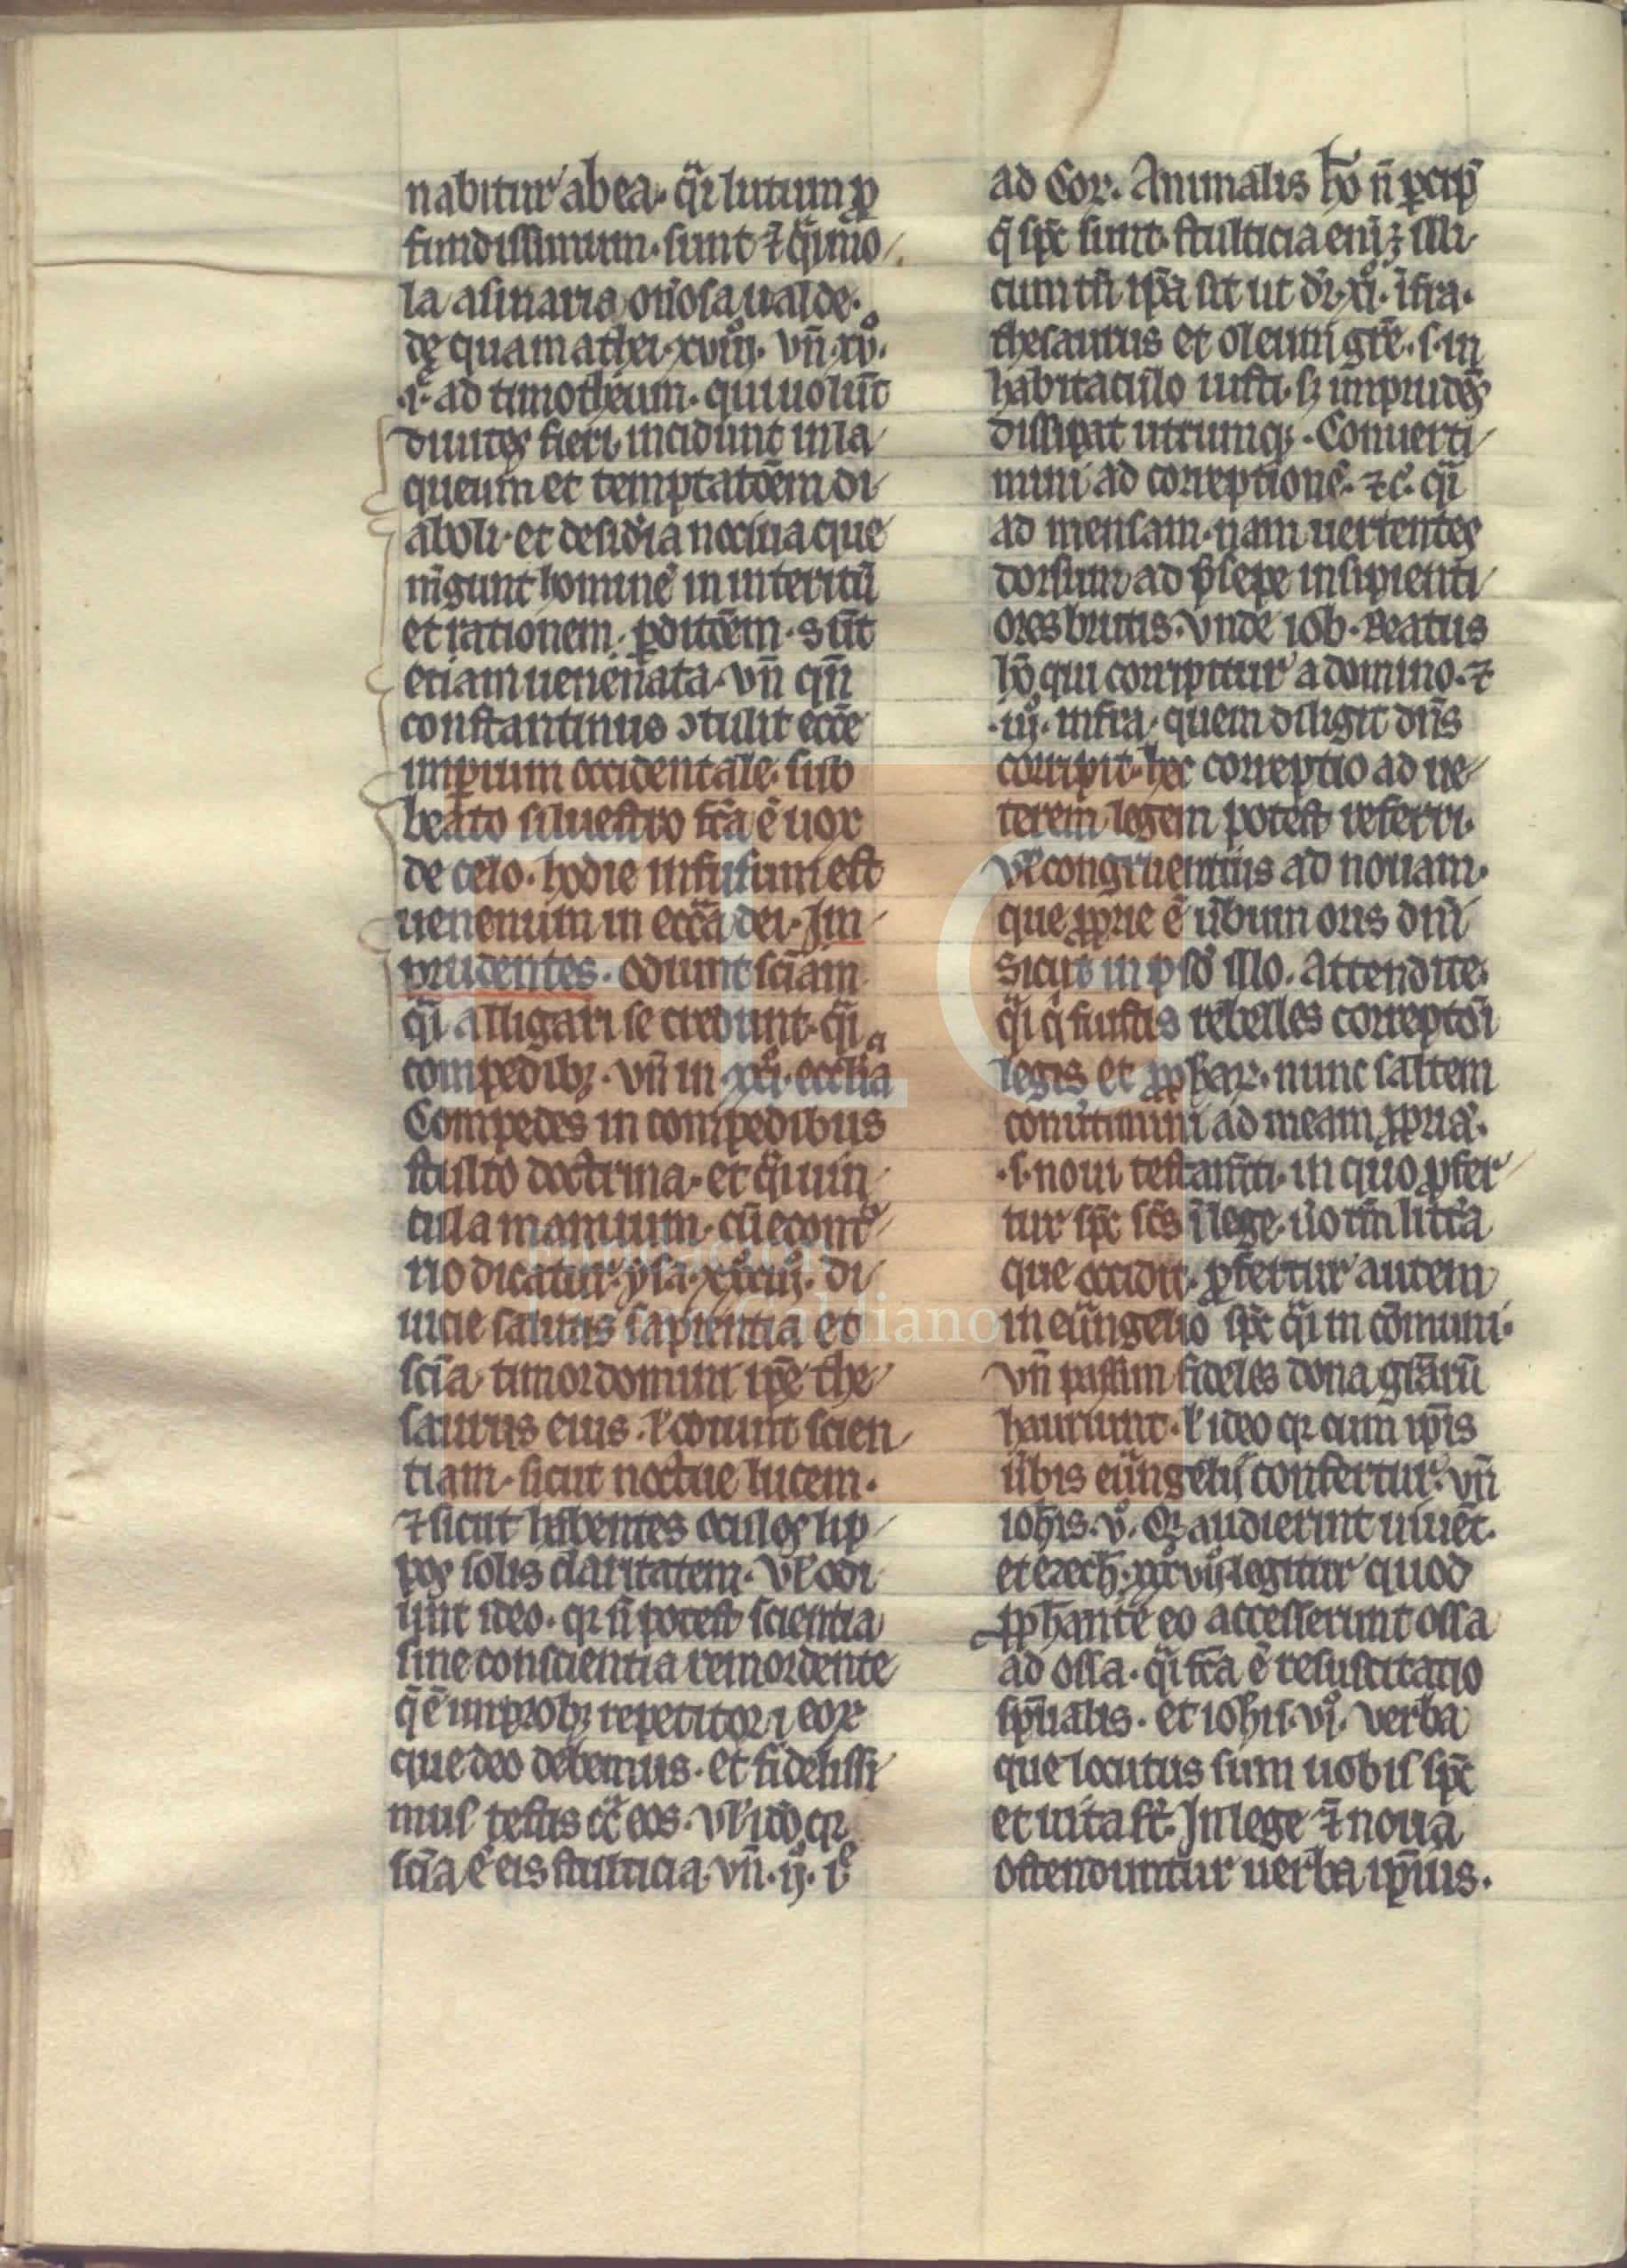 nabitur ab ea. q̃i lutum ꝓ
fundissimum. sunt ⁊ q̃i mo
la asinaria on̾osa ualde.
de qua mathei. xviij. vñ. xv.
.i. ad timotheum. qui uolũt
diuites fieri. incidunt in la
queum et temptatõem di
aboli. et desid̾ia nociua que
m̃gunt hominẽ in interitũ
et rationem. ꝑditõem. sũt
etiam uenenata. vñ qñ
constantinus ↄtulit ecc̃e
imꝑium occidentale. sub
beato siluestro fc̃a ẽ uox
de celo. hodie infusum est
uenenum in ecc̃a dei. Im
prudentes. odiunt sc̃iam
q̃i alligari se credunt. q̃i
compedibꝫ. vñ in .xxi. eccl̃ia
Compedes in compedibus
stulto doctrina. et q̃i uin
cula manuum. cũ econt̃
rio dicatur. ysa. xxxiij. di
uicie salutis sapientia et
sc̃ia. timor domini ip̃e the
saurus eius. ł odiunt scien
tiam. sicut noctue lucem.
⁊ sicut h̃bentes oculos lip
pos solis claritatem. Vł odi
ũnt ideo. qꝛ ñ potest scientia
sine conscientia remordente
q̃ ẽ improbꝫ repetitor eoꝝ
que deo debemus. et fidelissi
mus testis cc̃ eos. Vł ido qꝛ
sc̃ia ẽ eis stulticia. vñ .ij. i.
ad Cor. Animalis hõ ñ ꝑcip̃
q̃ sp̃c sunt. stulticia enĩ ꝫ illi
cum tñ ip̃a sit ut dr̃. xi. ĩfra.
thesaurus et oleum gr̃e. s. in
habitaculo iusti. sꝫ imprudẽs
dissipat utrumqꝫ. Conuerti
mini ad correptionẽ. ⁊c̃. q̃i
ad mensam. nam uertentes
dorsum ad p̃sepe insipienti
ores brutis. vnde iob. Beatus
hõ qui corripitur a domino. ⁊
.iij. infra. quem diligit dñs
corripit. hec correptio ad ue
terem legem potest referri.
Vł congruentius ad nouam.
que ꝓprie ẽ ũbum oris dñi
Sicut in psõ illo. Attendite.
q̃i q̃ fuistis rebelles correptõi
legis et ꝓph̃aꝝ. nunc saltem
conũtimini ad meam ꝓpriã.
.s. noui testam̃ti. in quo ꝓfer
tur sp̃c sc̃s ĩ lege. ũo tm̃ litt̃a
que occidit. ꝓfertur autem
in eũngelio sp̃c q̃i in cõmuni.
vñ passim fideles dona gr̃arũ
hauriunt. ł ideo qꝛ cum ip̃is
ũbis eũngelij confertur. vñ
ioh̃is. v. Qꝛ audierint uiuẽt.
et ezech̃. xxxvij. legitur quod
ꝓph̃ante eo accesserunt ossa
ad ossa. q̃i fc̃a ẽ resuscitatio
sp̃ualis. et ioh̃is. vi. verba
que locutus sum uobis sp̃c
et uita st̃. In lege ⁊ noua
ostenduntur uerba ip̃ius.